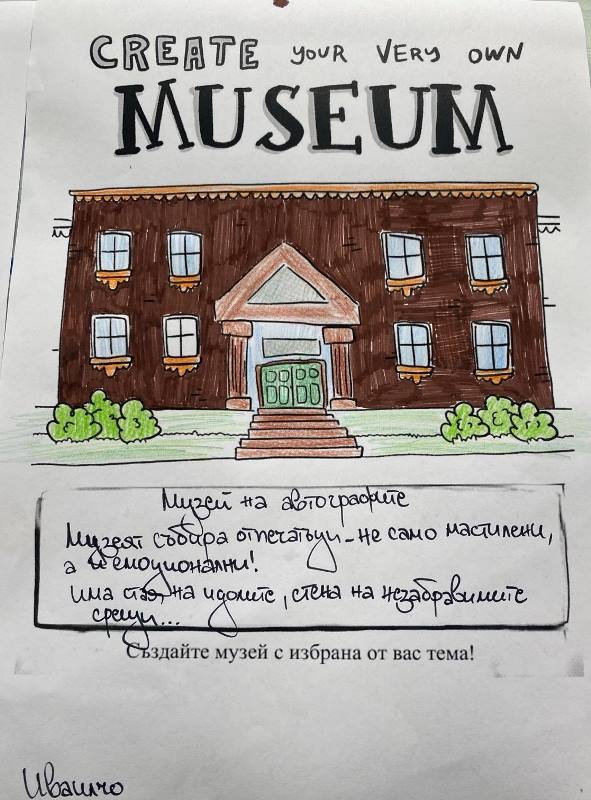 CREATE YOUR VERY OWN
MUSEUM
Музей на автографите
Музеят събира отпечатъци - не само мастилени,
а и емоционални!
Има стая на идолите, стена на незабравимите
срещи...
Създайте музей с избрана от вас тема!
Ивайло